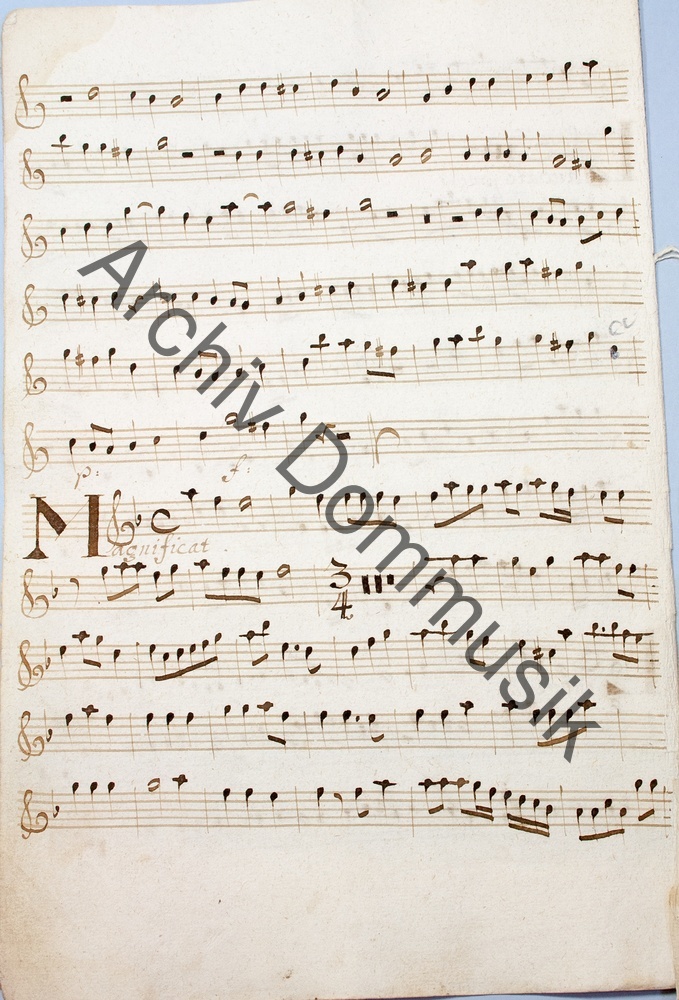 p: f:
C
Magnificat.
3
4
Archiv Dommusik